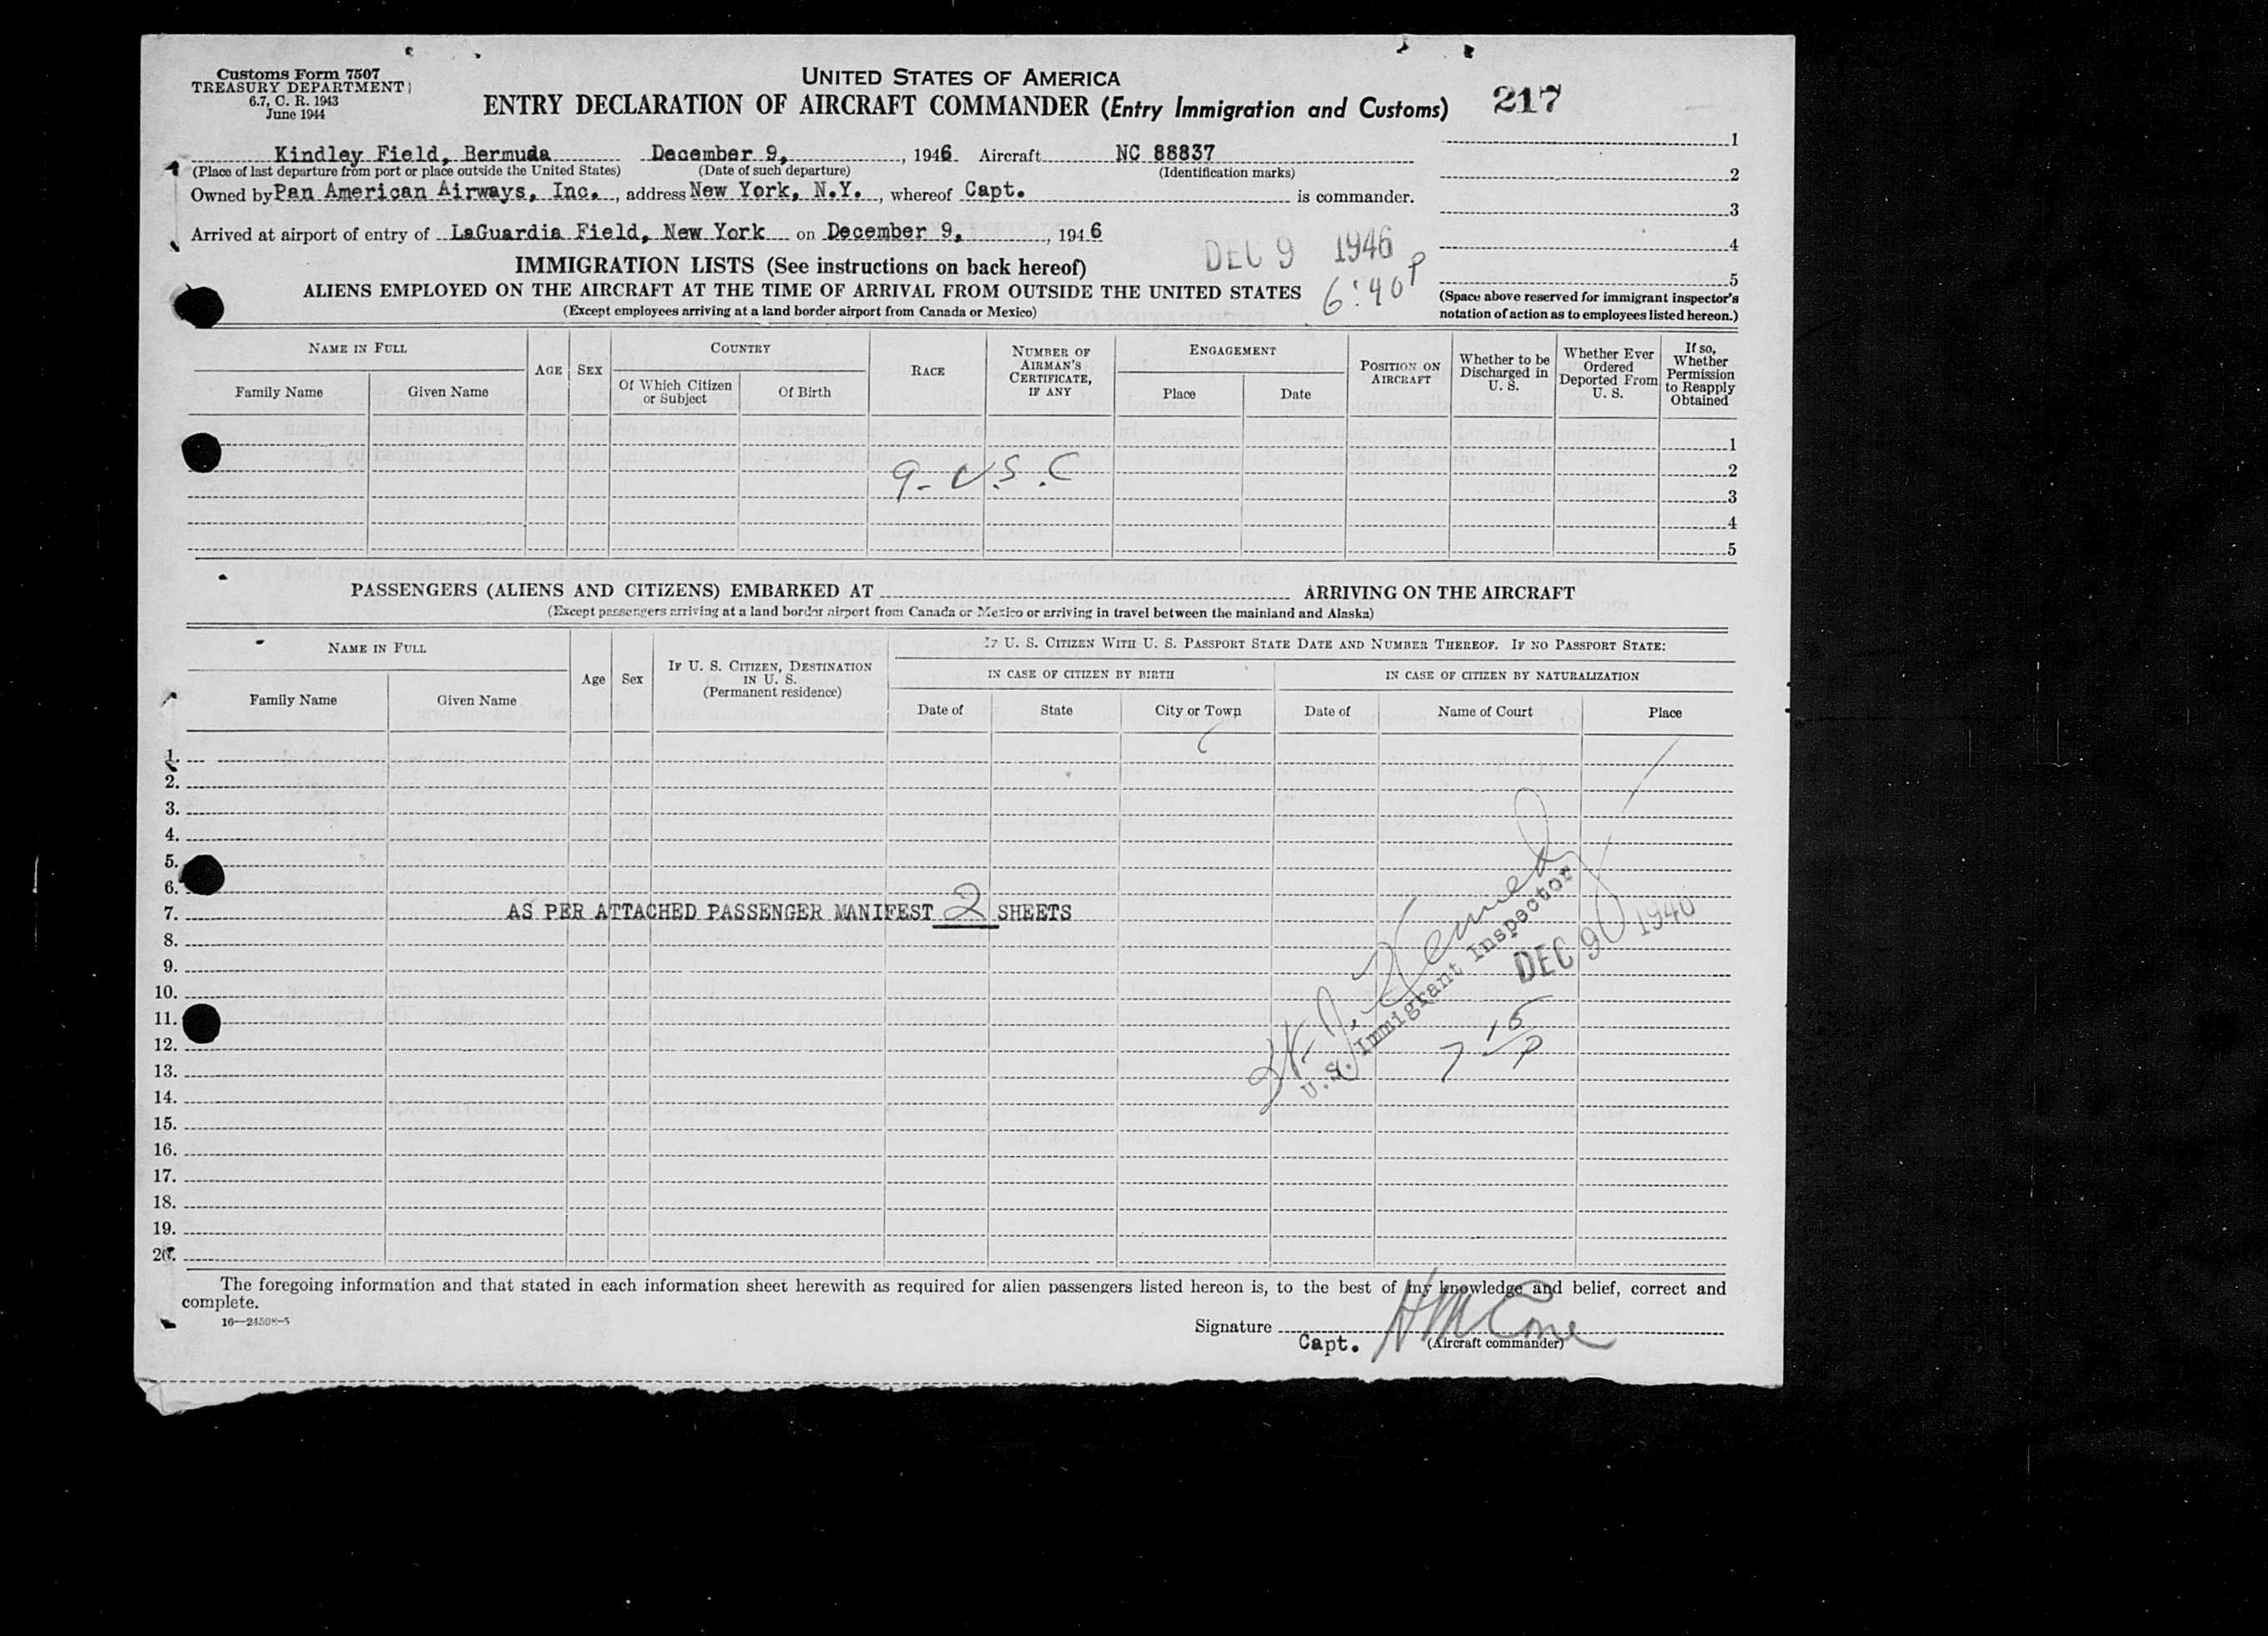 Customs Form 7507
TREASURY DEPARTMENT
6.7, C. R. 1943
June 1944
UNITED STATES OF AMERICA
ENTRY DECLARATION OF AIRCRAFT COMMANDER (Entry Immigration and Customs)
217
Kindley Field, Bermuda December 9, , 1946 Aircraft NC 88837
(Place of last departure from port or place outside the United States) (Date of such departure) (Identification marks)
Owned by Pan American Airways, Inc. , address New York, N.Y. , whereof Capt. is commander.
Arrived at airport of entry of LaGuardia Field, New York on December 9, , 1946
1
2
3
4
5
(Space above reserved for immigrant inspector's
notation of action as to employees listed hereon.)
DEC 9 1946
6:40 P
IMMIGRATION LISTS (See instructions on back hereof)
ALIENS EMPLOYED ON THE AIRCRAFT AT THE TIME OF ARRIVAL FROM OUTSIDE THE UNITED STATES
(Except employees arriving at a land border airport from Canada or Mexico)
NAME IN FULL
Family Name Given Name
AGE SEX
COUNTRY
Of Which Citizen
or Subject
Of Birth
RACE
NUMBER OF
AIRMAN'S
CERTIFICATE,
IF ANY
ENGAGEMENT
Place Date
POSITION ON
AIRCRAFT
Whether to be
Discharged in
U. S.
Whether Ever
Ordered
Deported From
U. S.
If so,
Whether
Permission
to Reapply
Obtained
1
2
9 - U.S.C
3
4
5
PASSENGERS (ALIENS AND CITIZENS) EMBARKED AT ARRIVING ON THE AIRCRAFT
(Except passengers arriving at a land border airport from Canada or Mexico or arriving in travel between the mainland and Alaska)
NAME IN FULL
Family Name Given Name
Age Sex
IF U. S. CITIZEN, DESTINATION
IN U. S.
(Permanent residence)
IF U. S. CITIZEN WITH U. S. PASSPORT STATE DATE AND NUMBER THEREOF. IF NO PASSPORT STATE:
IN CASE OF CITIZEN BY BIRTH IN CASE OF CITIZEN BY NATURALIZATION
Date of State City or Town Date of Name of Court Place
1.
2.
3.
4.
5.
6.
7. AS PER ATTACHED PASSENGER MANIFEST 2 SHEETS
8.
9.
10.
11.
12.
13.
14.
15.
16.
17.
18.
19.
20.
U. S. Immigrant Inspector
DEC 9 1946
7 15 P
The foregoing information and that stated in each information sheet herewith as required for alien passengers listed hereon is, to the best of my knowledge and belief, correct and
complete.
16—24508-5
Signature
Capt. (Aircraft commander)